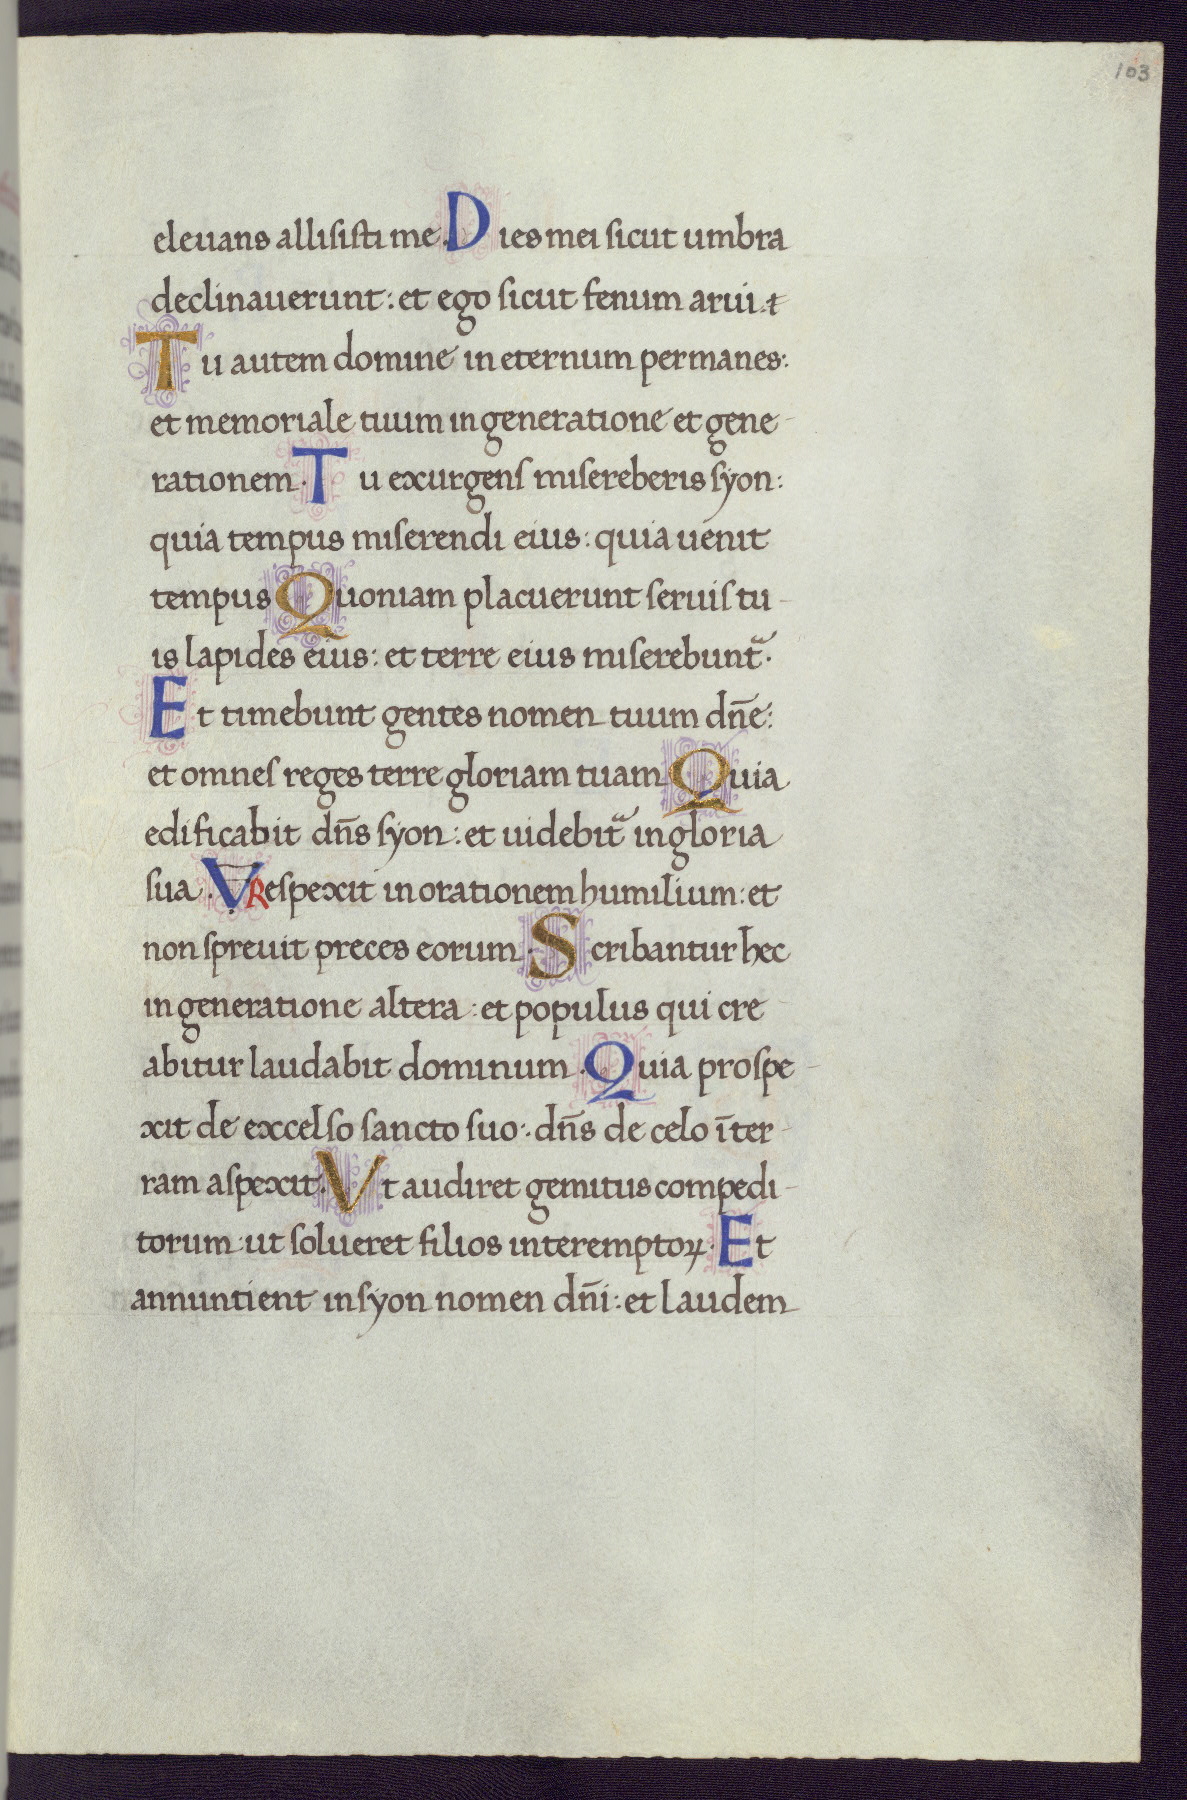 103
eleuans allisisti me. Dies mei sicut umbra
declinauerunt: et ego sicut fenum arui.
Tu autem domine in eternum permanes:
et memoriale tuum in generatione et gene
rationem. Tu exurgens misereberis syon:
quia tempus miserendi eius: quia uenit
tempus Quoniam placuerunt seruis tu
is lapides eius: et terre eius miserebunt᷑.
Et timebunt gentes nomen tuum dn̄e:
et omnes reges terre gloriam tuam Quia
edificabit dn̄s syon: et uidebit᷑ in gloria
sua. V Respexit in orationem humilium: et
non spreuit preces eorum. Scribantur hec
in generatione altera: et populus qui cre
abitur laudabit dominum. Quia prospe
xit de excelso sancto suo: dn̄s de celo īter
ram aspexit. Vt audiret gemitus compedi
torum: ut solueret filios interemptoꝝ. Et
annuntient in syon nomen dn̄i: et laudem